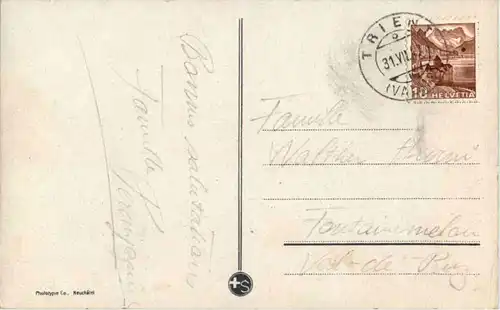 Bonnes salutations
Famille
TRIEN
31.VII.
(VA
10 HELVETIA
Famille
Walther
Fontainemelon
Val-de-Ruz
Phototypie Co., Neuchâtel
+S